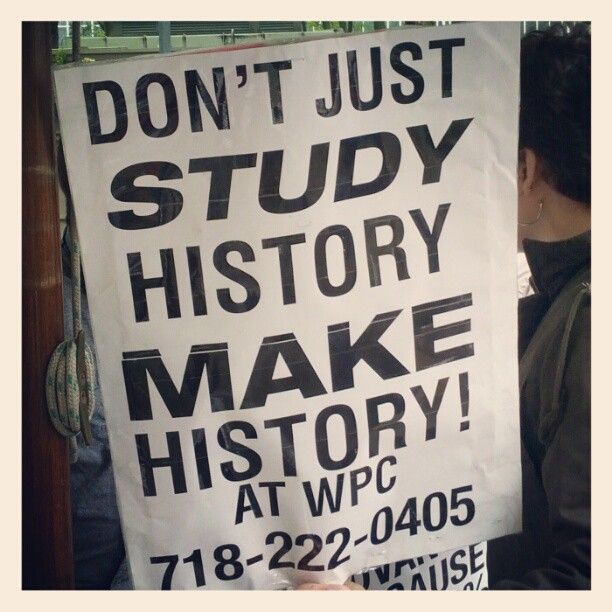 DON'T JUST
STUDY
HISTORY
MAKE
HISTORY!
AT WPC
718-222-0405
CAUSE
%